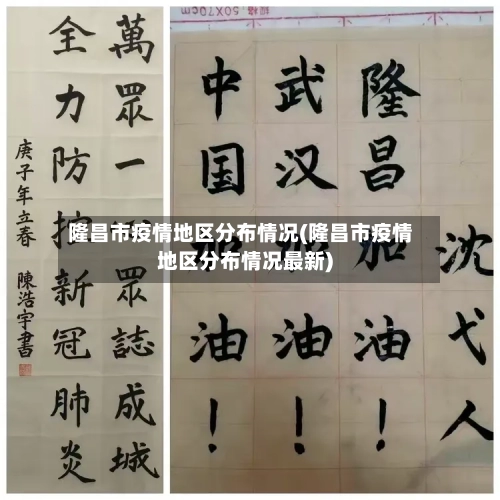 萬眾一心眾誌成城
全力防控新冠肺炎
庚子年立春 陳浩宇書
50X70cm
隆昌加油！
武汉加油！
中国加油！
沈弋人
隆昌市疫情地区分布情况(隆昌市疫情
地区分布情况最新)